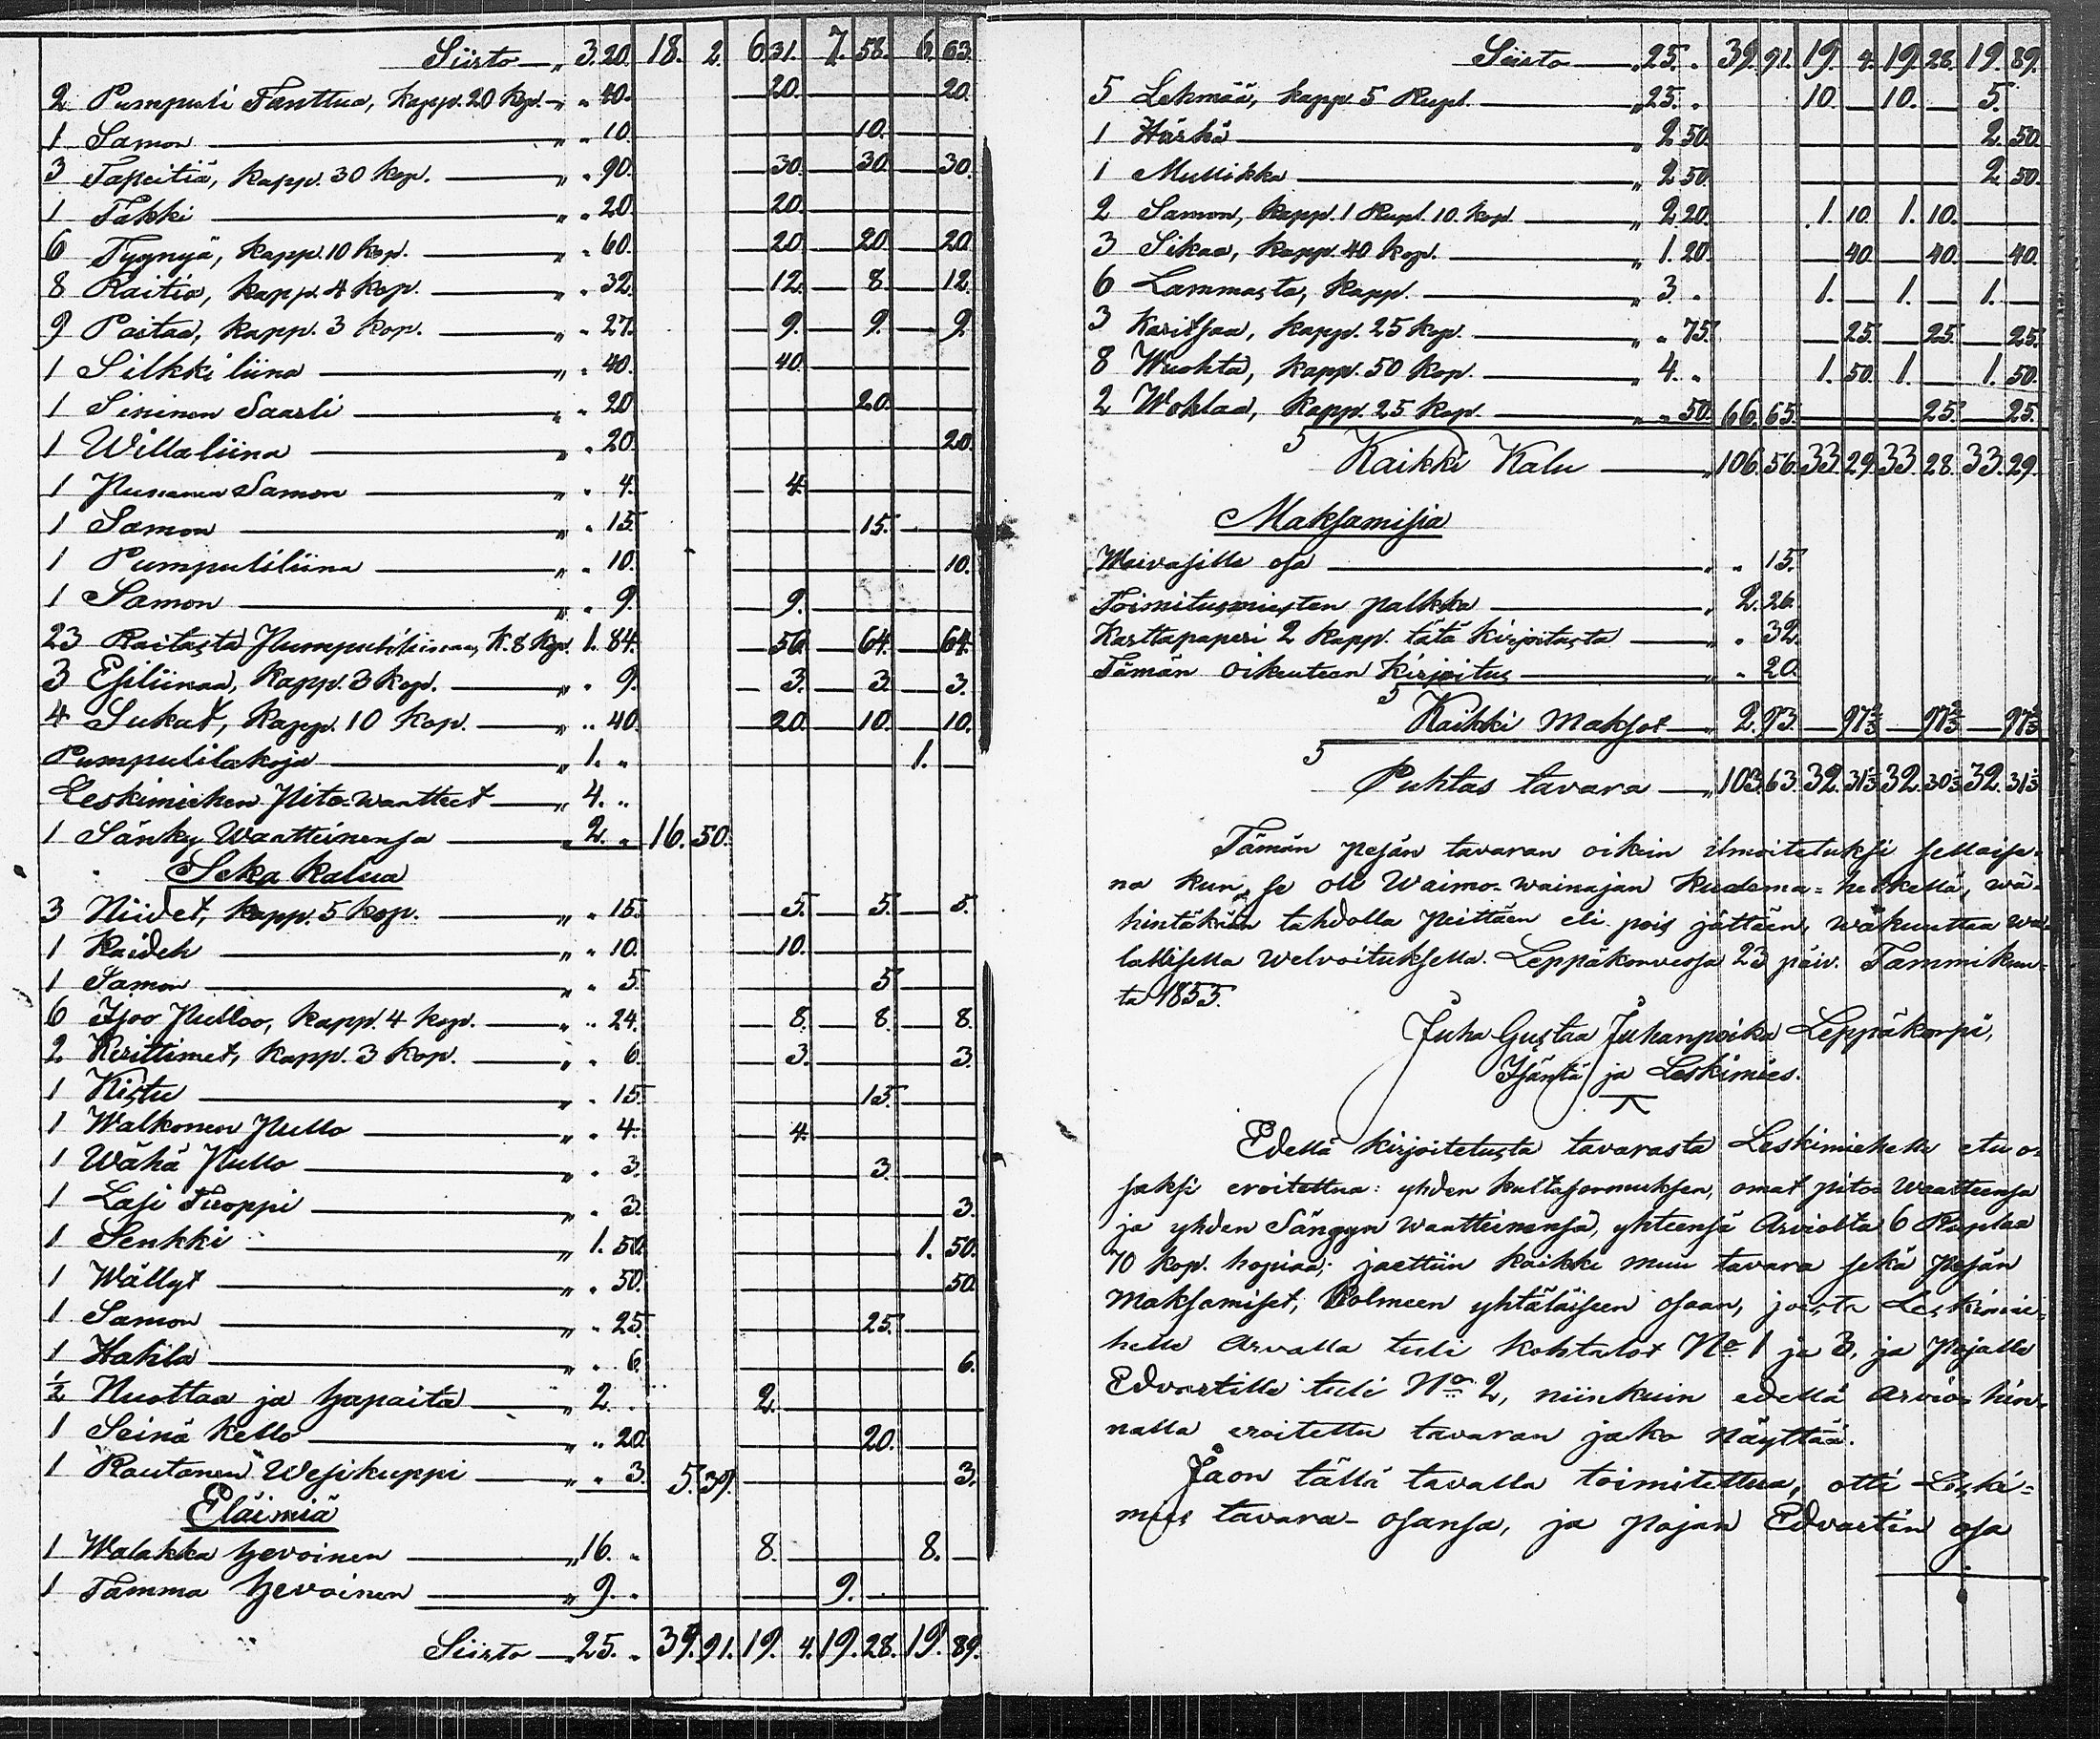 Siirto — „ 3. 20. 18. 2. 6. 31. 7. 58. 6. 63.
2 Pumpuli Tanttua, kapp. 20 kop. — „ „ 40. — 20. — — 20.
1 Samon — „ „ 10. — 10. —
3 Tapeitiä, kapp. 30 kop. — „ „ 90. — 30. — 30. — 30.
1 Täkki — „ „ 20. — 20. —
6 Tyynyä, kapp. 10 kop. — „ „ 60. — 20. — 20. — 20.
8 Raitia, kapp. 4 kop. — „ „ 32. — 12. — 8. — 12.
9 Paitaa, kapp. 3 kop. — „ „ 27. — 9. — 9. — 9.
1 Silkki liina — „ „ 40. — 40. —
1 Sininen Saarli — „ „ 20. — 20. —
1 Willaliina — „ „ 20. — 20.
1 Punanen Samon — „ „ 4. — 4. —
1 Samon — „ „ 15. — 15. —
1 Pumpuliliina — „ „ 10. — 10.
1 Samon — „ „ 9. — 9. —
23 Raitasta Pumpuliliinaa, K. 8 kop. 1. 84. — 56. — 64. — 64.
3 Esiliinaa, kapp. 3 kop. — „ „ 9. — 3. — 3. — 3.
4 Sukat, kapp. 10 kop. — „ „ 40. — 20. — 10. — 10.
Pumpulilakoja — „ 1. „ — 1. —
Leskimiehen Pito-waatteet — „ 4. „
1 Sänky Waatteinensa — „ 2. „ 16. 50.
Seka kalua
3 Niidet, kapp. 5 kop. — „ „ 15. — 5. — 5. — 5.
1 Kaideh — „ „ 10. — 10. —
1 Samon — „ „ 5. — 5. —
6 Isoo Pulloo, kapp. 4 kop. — „ „ 24. — 8. — 8. — 8.
2 Kerittimet, kapp. 3 kop. — „ „ 6. — 3. — 3.
1 Kistu — „ „ 15. — 15. —
1 Walkonen Pullo — „ „ 4. — 4. —
1 Wähä Pullo — „ „ 3. — 3. —
1 Lasi Tuoppi — „ „ 3. — 3.
1 Senkki — „ 1. 50. — 1. 50.
1 Wällyt — „ „ 50. — 50.
1 Samon — „ „ 25. — 25. —
1 Hahla — „ „ 6. — 6.
½ Nuottaa ja hapaita — „ 2. „ 2. —
1 Seinä kello — „ „ 20. — 20. —
1 Rautanen Wesikuppi — „ „ 3. 5. 39. — 3.
Eläimiä
1 Walakka hevoinen — „ 16. „ 8. — 8. —
1 Tamma hevoinen — „ 9. „ — 9. —
Siirto — „ 25. „ 39. 91. 19. 4. 19. 28. 19. 89.
Siirto — „ 25. „ 39. 91. 19. 4. 19. 28. 19. 89.
5 Lehmää, kapp. 5 Rupl. — „ 25. „ 10. — 10. — 5.
1 Härkä — „ 2. 50. — 2. 50.
1 Mullikka — „ 2. 50. — 2. 50.
2 Samon, kapp. 1 Rupl. 10. kop. — „ 2. 20. 1. 10. 1. 10. —
3 Sikaa, kapp. 40 kop. — „ 1. 20. — 40. — 40. — 40.
6 Lammasta, kapp. — „ 3. „ 1. — 1. — 1. —
3 Karitsaa, kapp. 25 kop. — „ „ 75. — 25. — 25. — 25.
8 Wuohta, kapp. 50 kop. — „ 4. „ 1. 50. 1. — 1. 50.
2 Wohlaa, kapp. 25 kop. — „ „ 50. 66. 65. — 25. — 25.
Kaikki Kalu — „ 106. 56. 33. 29. 33. 28. 33. 29.
Maksamisia
Waivasille osa — „ „ 15.
Toimitusmiesten palkka — „ 2. 26.
Karttapaperi 2 kapp. tätä kirjoitusta — „ „ 32.
Tämän oikeuteen kirjoitus — „ „ 20.
Kaikki maksot — „ 2. 93. — 97⅔ — 97⅔ — 97⅔
Puhtas tavara — „ 103. 63. 32. 31⅓ 32. 30⅓ 32. 31⅓
Tämän pesän tavaran oikein ilmoitetuksi sellaise-
na kun se oli Waimo-wainajan kuolema-hetkellä, wä-
hintäkän tahdolla peittäen eli pois jättäen, wakuuttaa wa-
lallisella welvoituksella. Leppäkorvessa 23 päiv. Tammikuu-
ta 1855.
Juha Gustaa Juhanpoika Leppäkorpi,
Isäntä ja Leskimies.
Edellä kirjoitetusta tavarasta Leskimiehelle etu o-
saksi eroitettua: yhden kultasormuksen, omat pito Waatteensa
ja yhden Sängyn waatteinensa, yhteensä Arviolta 6 Ruplaa
70 kop. hopiaa; jaettiin kaikki muu tavara sekä pesän
Maksamiset, Kolmeen yhtäläiseen osaan, joista Leskimie-
helle Arvalla tuli kohtalot No 1 ja 3, ja Pojalle
Edvartille tuli No 2, niinkuin edellä Arvio hin-
nalla eroitettu tavaran jako Näyttää.
Jaon tällä tavalla toimitettua, otti Leski-
mies tavara-osansa, ja pojan Edvartin osa